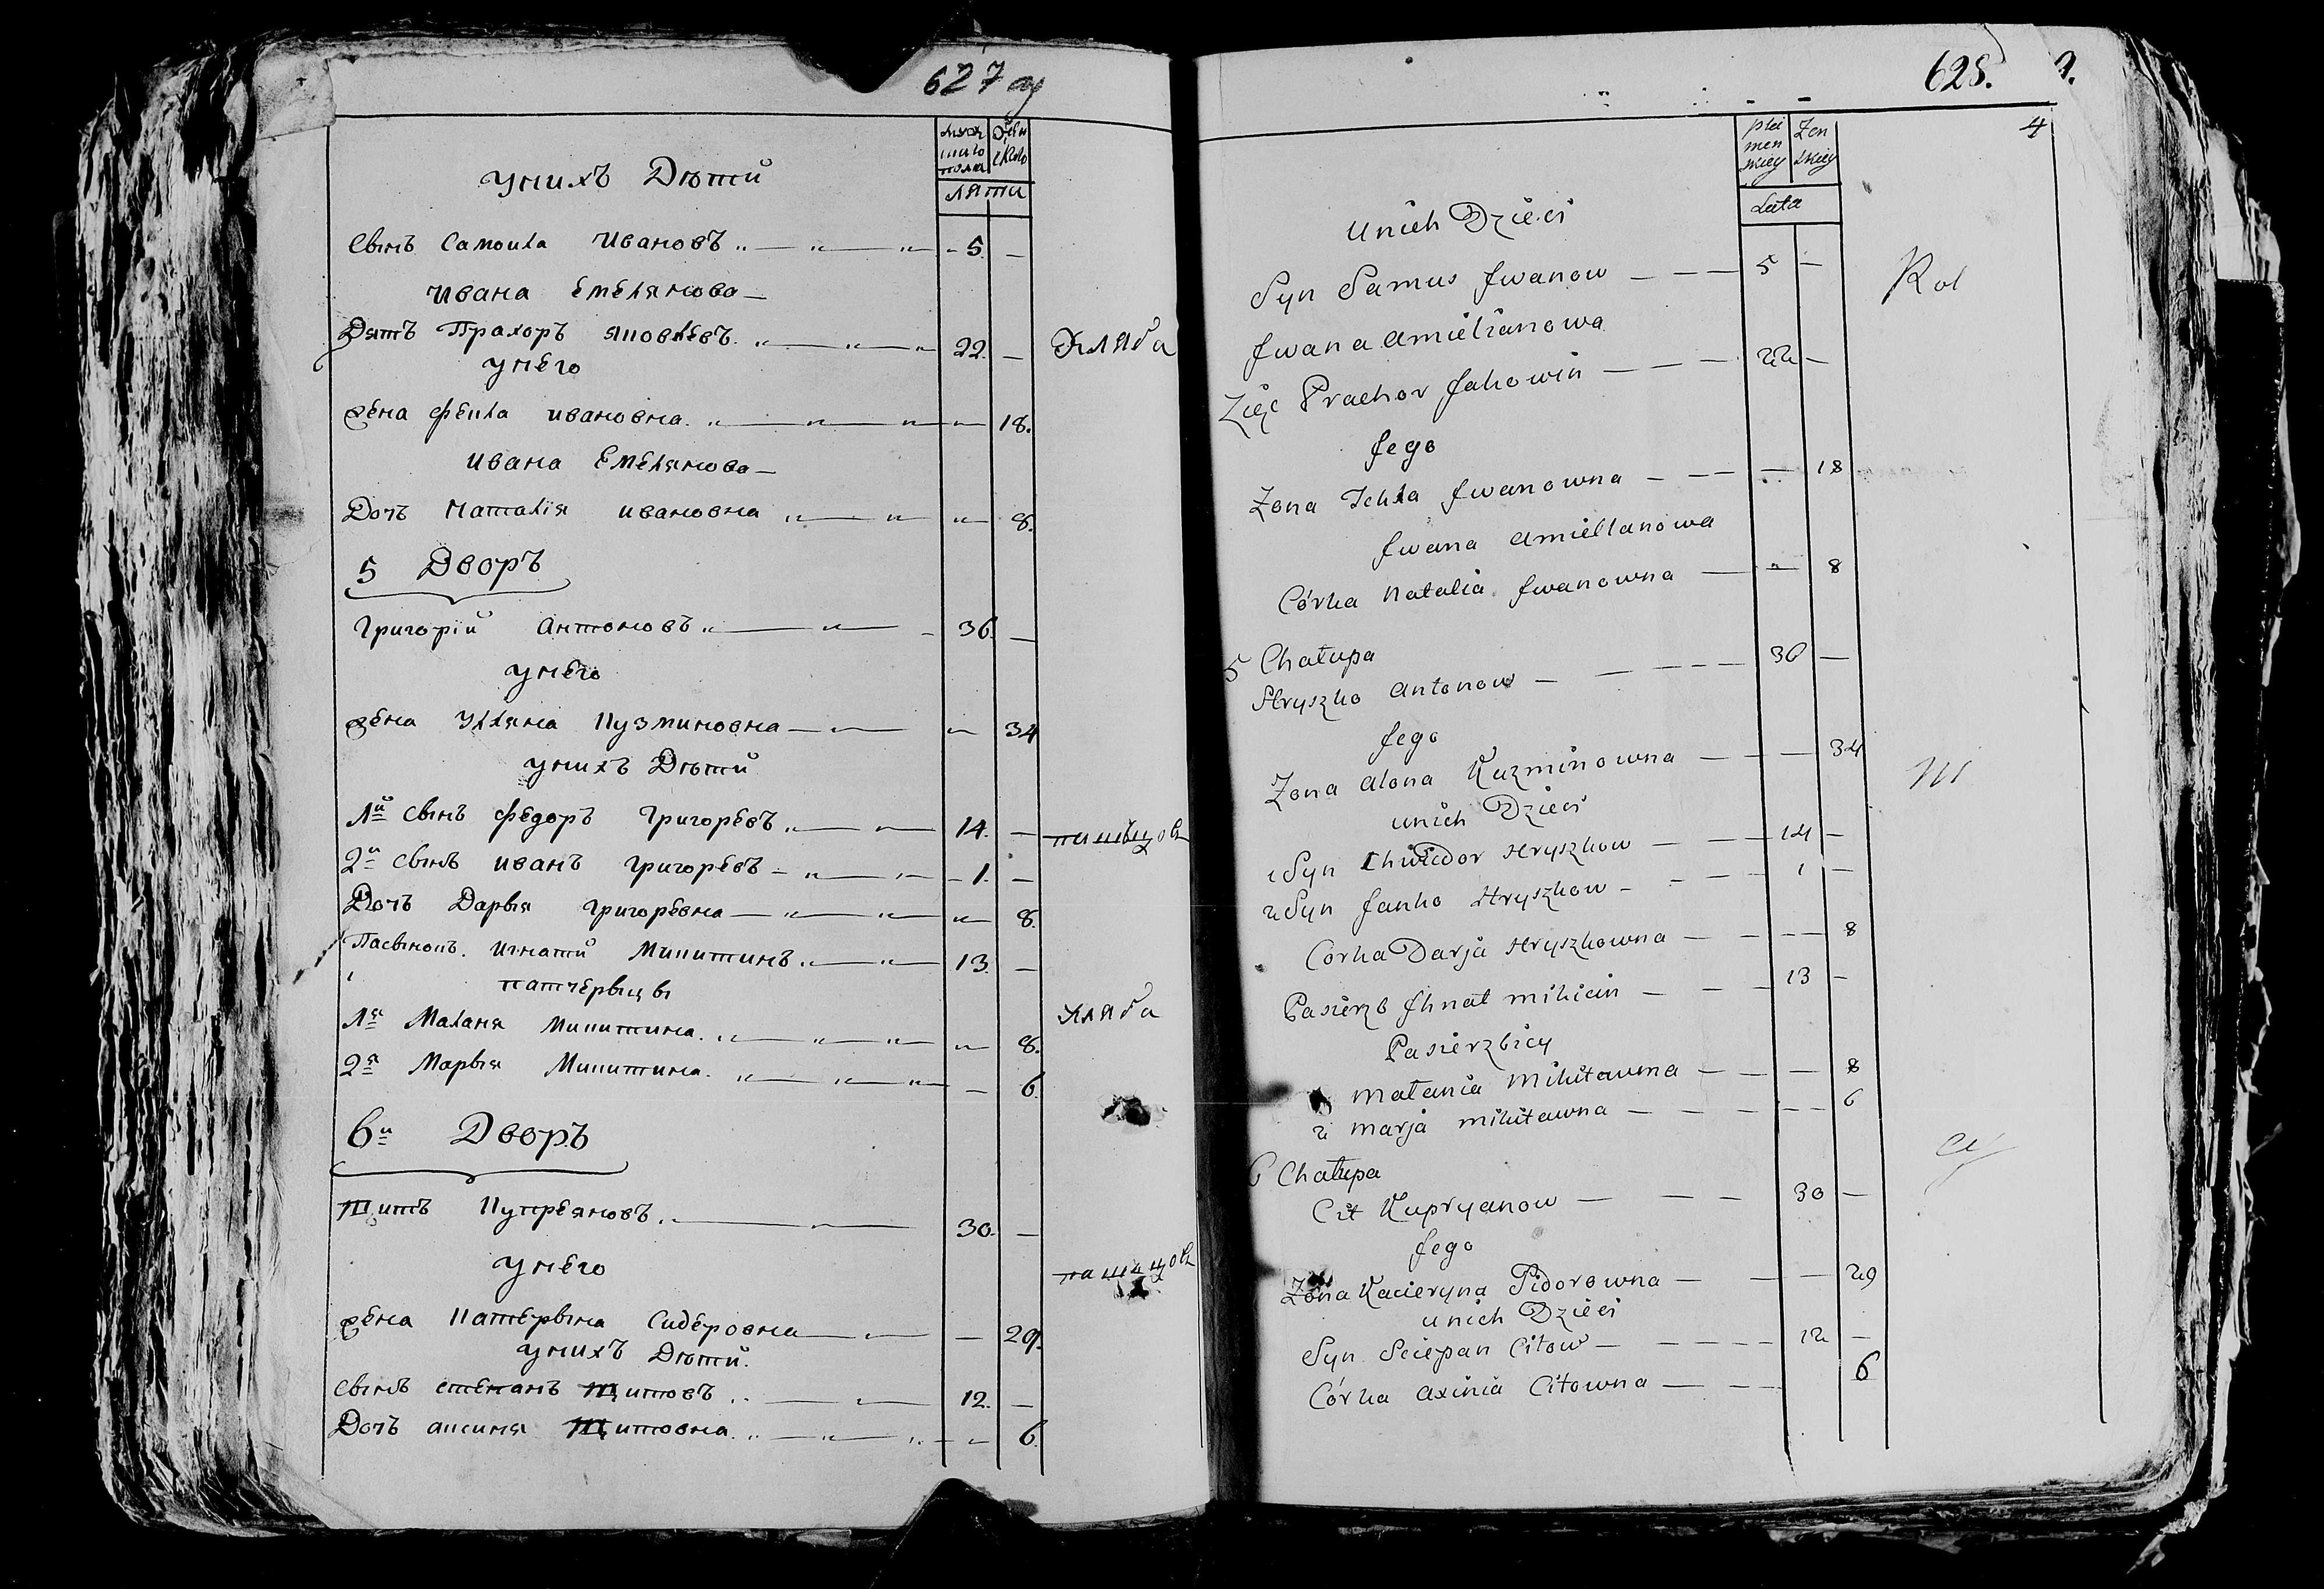 627 об
мужеска пола
женска
лѣта
у нихъ Дѣти
Сынъ Самоила Ивановъ 5 —
Ивана Емелянова —
Зять Прахоръ Яковлевъ 22 —
у нево
жена Фекла Ивановна 18
Ивана Емелянова —
Дочъ Наталія Ивановна 8
5 Дворъ
Григорій Антоновъ 36 —
у него
жена Улляна Кузминовна 34
у нихъ Дѣти
1й Сынъ Федоръ Григоревъ 14 —
2й Сынъ Иванъ Григоревъ 1 —
Дочъ Дарья Григоревна 8
Пасынокъ Игнатй Микитинъ 13 —
патчерыцы
1я Маланя Микитина 8
2я Марыя Микитина 6
6й Дворъ
Титъ Купреяновъ 30 —
у него
жена Катерына Сидеровна — 29
у нихъ Дѣти
Сынъ Степанъ Титовъ 12 —
Дочъ Аксиня Титовна 6
628.
4
Zen skiey
Lata
U nich Dzieci
Syn Samus Jwanow 5 —
Jwana Amielianowa
Zięć Prachor Jakowin 22 —
Jego
Zona Tekla Jwanowna — 18
Jwana Amiellanowa
Córka Natalia Jwanowna — 8
5 Chałupa
Hryszko Antonow 36 —
Jego
Zona Alona Kuzminowna — 34
u nich Dzieci
1 Syn Chwiedor Hryszkow 14 —
2 Syn Janko Hryszkow 1 —
Corka Darja Hryszkowna — 8
Pasierzb Jhnat Mikicin 13 —
Pasierzbicy
Małania Mikitawna — 8
2 Marja Mikitawna — 6
6 Chałupa
Cit Kupryanow 30 —
Jego
Zona Kacieryna Sidorowna — 29
u nich Dzieci
Syn Sciepan Citow 12 —
Córka Axinia Citowna — 6